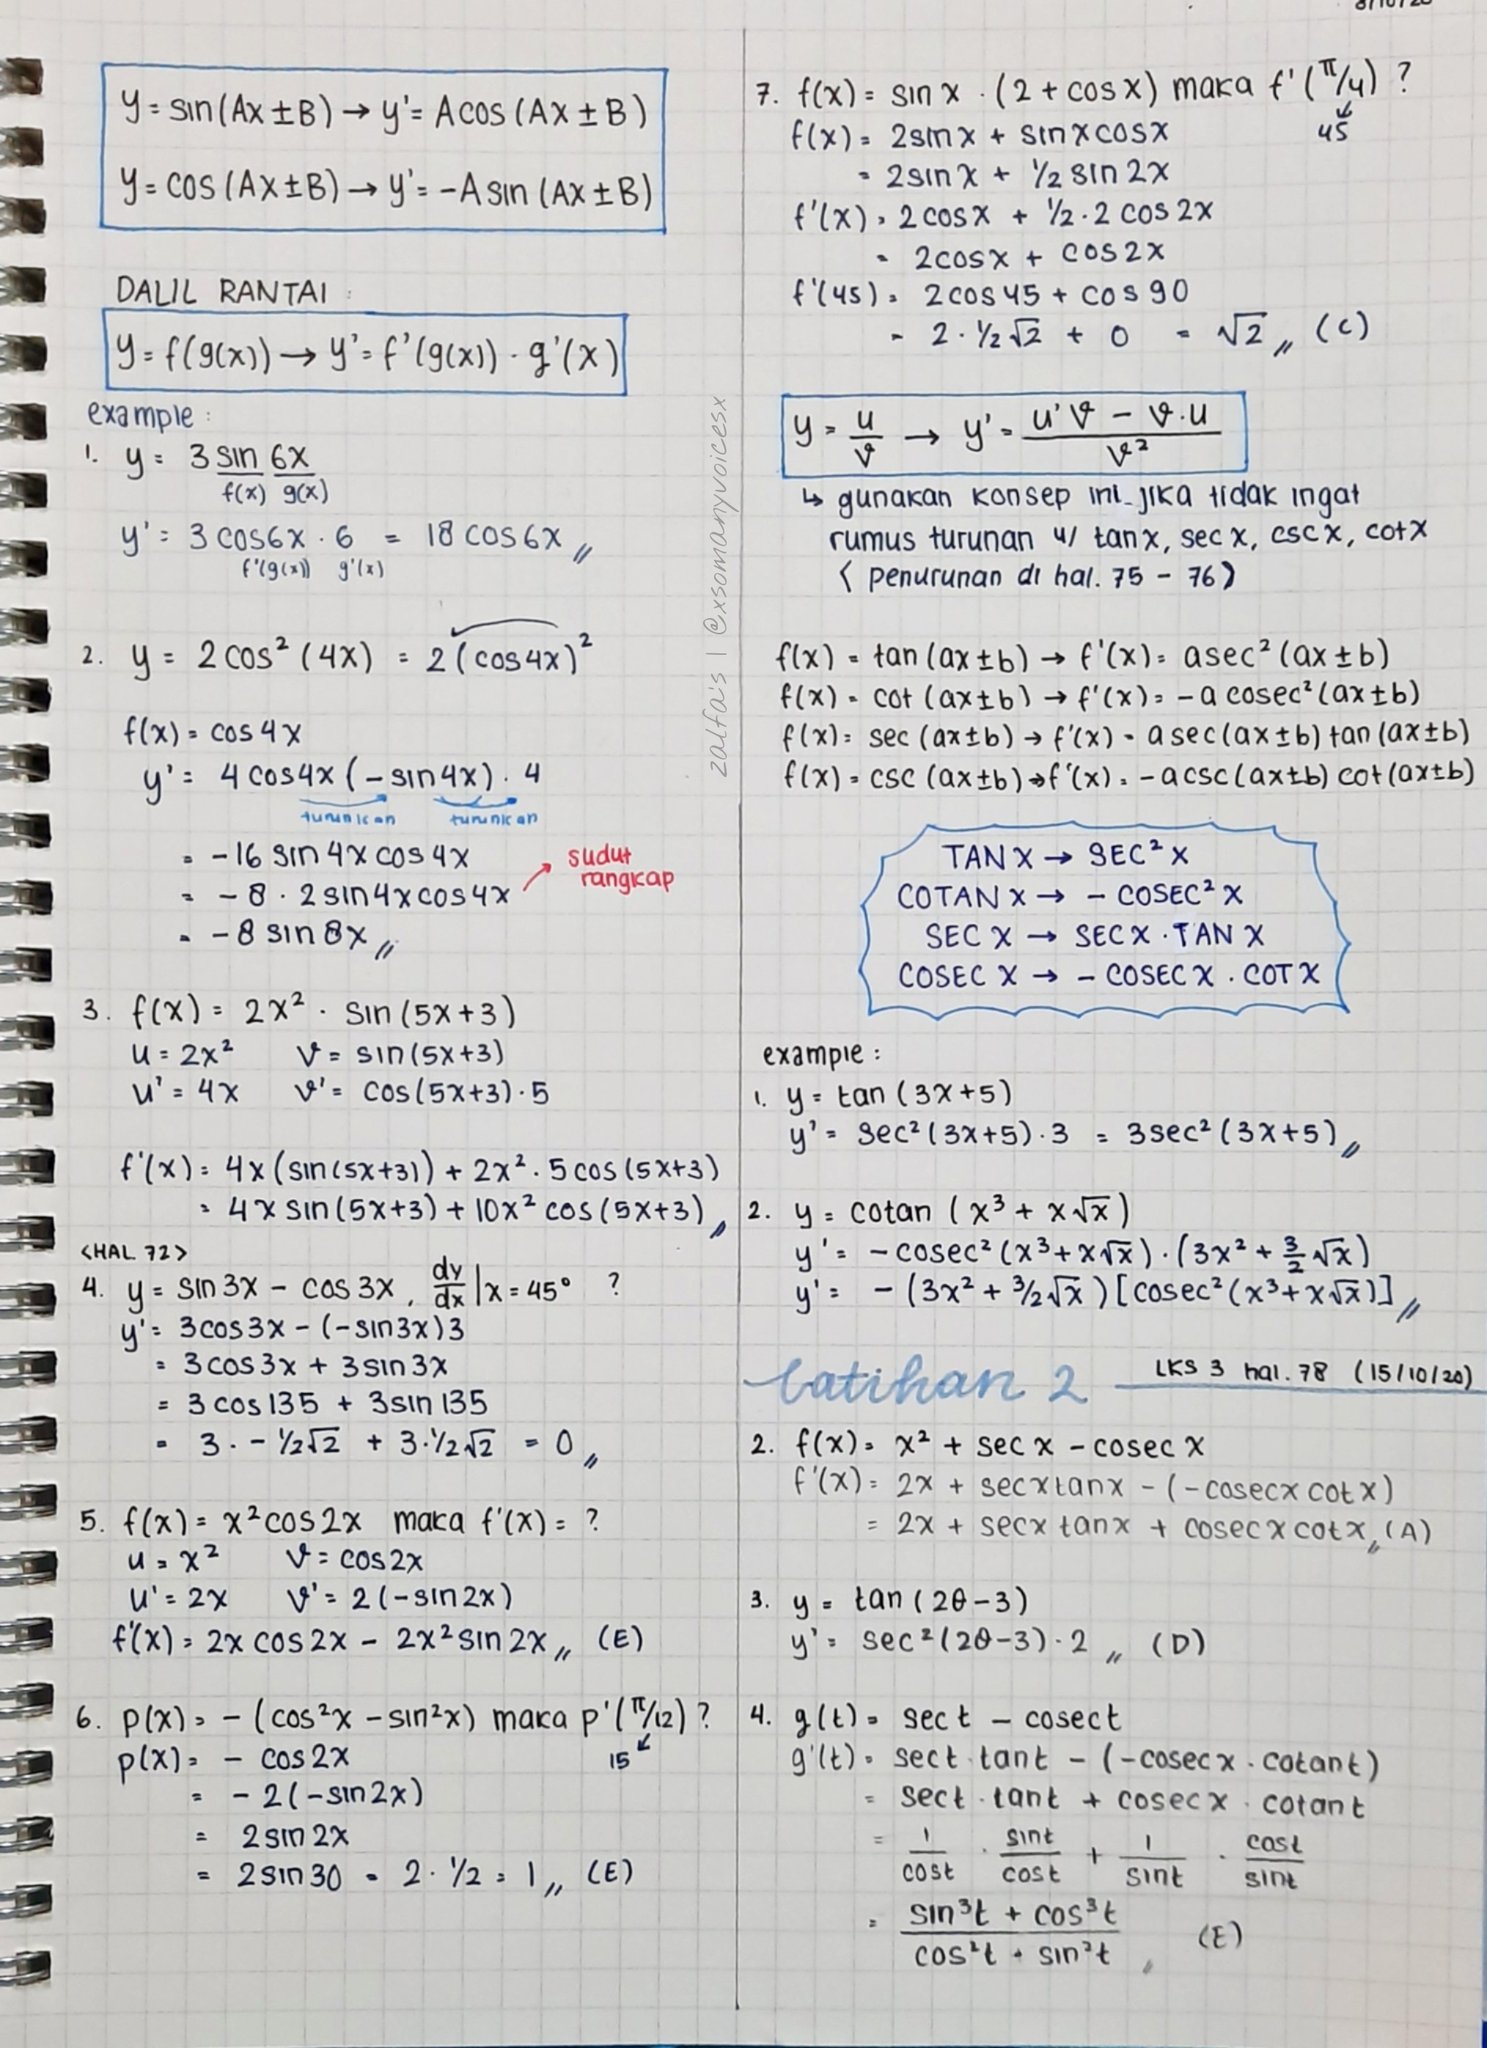 y = sin(Ax ± B) → y' = A cos (Ax ± B)
y = cos (Ax ± B) → y' = -A sin (Ax ± B)
DALIL RANTAI :
y = f(g(x)) → y' = f'(g(x)) · g'(x)
example :
1. y = 3 sin 6x
f(x) g(x)
y' = 3 cos6x · 6 = 18 cos 6x //
f'(g(x)) g'(x)
2. y = 2 cos² (4x) = 2 (cos4x)²
f(x) = cos 4x
y' = 4 cos4x (- sin 4x) · 4
turunkan turunkan
= -16 sin 4x cos 4x
= -8 · 2 sin 4x cos 4x → sudut rangkap
= -8 sin 8x //
3. f(x) = 2x² · sin (5x+3)
u = 2x² v = sin (5x+3)
u' = 4x v' = cos(5x+3)·5
f'(x) = 4x (sin (5x+3)) + 2x² · 5 cos (5x+3)
= 4x sin (5x+3) + 10x² cos (5x+3) //
<HAL. 72>
4. y = sin 3x - cos 3x, dy/dx | x = 45° ?
y' = 3 cos 3x - (-sin 3x) 3
= 3 cos 3x + 3 sin 3x
= 3 cos 135 + 3 sin 135
= 3 · - ½√2 + 3·½√2 = 0 //
5. f(x) = x² cos 2x maka f'(x) = ?
u = x² v = cos 2x
u' = 2x v' = 2 (-sin 2x)
f'(x) = 2x cos 2x - 2x² sin 2x // (E)
6. p(x) = - (cos²x - sin²x) maka p'(π/12) ?
p(x) = - cos 2x 15
= - 2 (-sin 2x)
= 2 sin 2x
= 2 sin 30 = 2 · ½ = 1 // (E)
zalfa's | @xsomanyvoicesx
7. f(x) = sin x · (2 + cos x) maka f'(π/4) ?
f(x) = 2 sin x + sin x cos x 45
= 2 sin x + ½ sin 2x
f'(x) = 2 cos x + ½ · 2 cos 2x
= 2 cos x + cos 2x
f'(45) = 2 cos 45 + cos 90
= 2 · ½√2 + 0 = √2 // (C)
y = u/v → y' = u'v - v·u / v²
↳ gunakan konsep ini jika tidak ingat
rumus turunan u/ tan x, sec x, csc x, cot x
( penurunan di hal. 75 - 76 )
f(x) = tan (ax ± b) → f'(x) = a sec² (ax ± b)
f(x) = cot (ax ± b) → f'(x) = - a cosec² (ax ± b)
f(x) = sec (ax ± b) → f'(x) = a sec (ax ± b) tan (ax ± b)
f(x) = csc (ax ± b) → f'(x) = - a csc (ax ± b) cot (ax ± b)
TAN X → SEC² X
COTAN X → - COSEC² X
SEC X → SEC X · TAN X
COSEC X → - COSEC X · COT X
example :
1. y = tan (3x+5)
y' = sec² (3x+5) · 3 = 3 sec² (3x+5) //
2. y = cotan (x³ + x√x)
y' = - cosec² (x³ + x√x) · (3x² + 3/2 √x)
y' = - (3x² + 3/2 √x) [cosec² (x³ + x√x)] //
latihan 2 LKS 3 hal. 78 (15/10/20)
2. f(x) = x² + sec x - cosec x
f'(x) = 2x + sec x tan x - (- cosec x cot x)
= 2x + sec x tan x + cosec x cot x // (A)
3. y = tan (2θ - 3)
y' = sec² (2θ - 3) · 2 // (D)
4. g(t) = sec t - cosec t
g'(t) = sec t · tan t - (- cosec x · cotan t)
= sec t · tan t + cosec x · cotan t
= 1/cos t · sin t/cos t + 1/sin t · cos t/sin t
= sin³t + cos³t / cos²t · sin²t // (E)